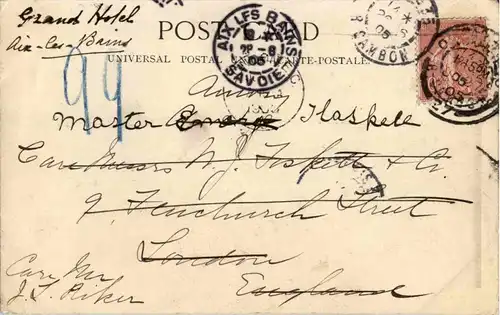 Grand Hotel
Aix-les-Bains
POST CARD
UNIVERSAL POSTAL CARTE-POSTALE.
AIX-LES-BAINS
SAVOIE
05
99
Master George Haskell
Care Messrs W. J. Fiskett & Co.
9 Fenchurch Street
London
England
Care Mr
J. L. Riker